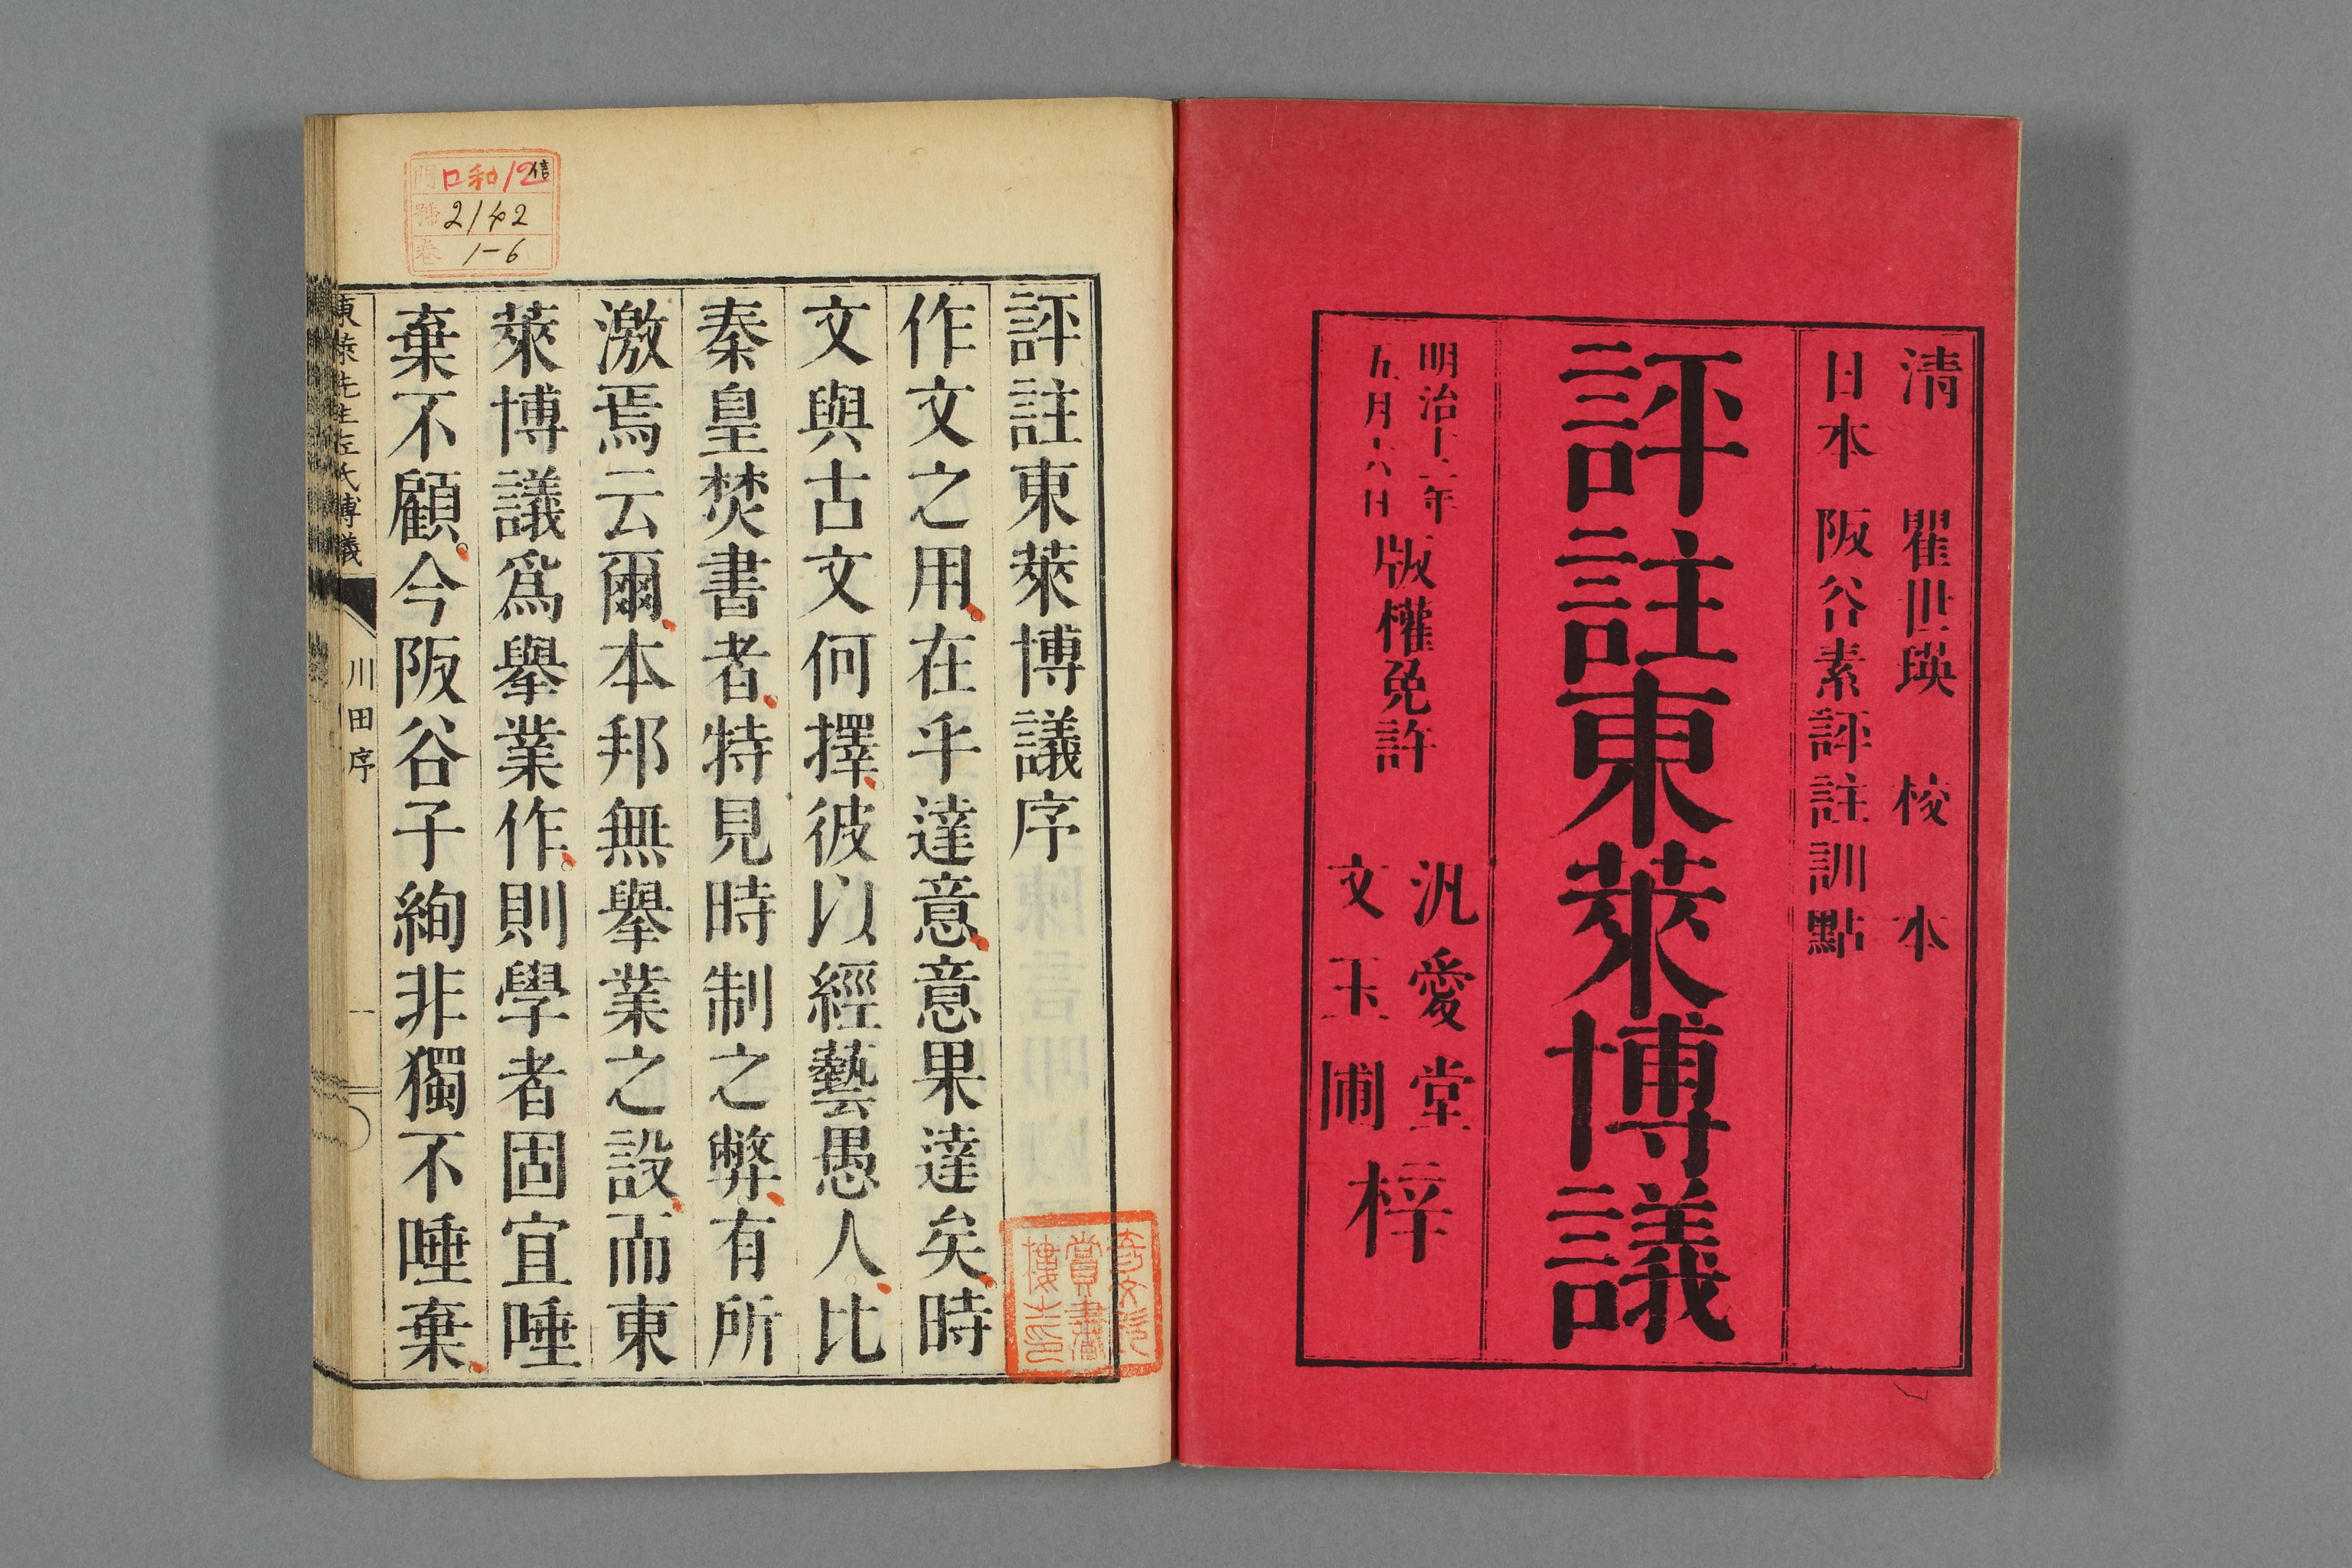 清 瞿世瑛 校本
日本 阪谷素評註訓點
評註東萊博議
明治十二年
五月六日
版權免許
汎愛堂
文玉圃
梓
門 口和12 信
號 2142
卷 1-6
評註東萊博議序
作文之用、在乎達意、意果達矣、時
文與古文何擇、彼以經藝愚人、比
秦皇焚書者、特見時制之弊、有所
激焉云爾、本邦無擧業之設、而東
萊博議爲擧業作、則學者固宜唾
棄不顧、今阪谷子絢非獨不唾棄、
東萊先生左氏博議
川田序
一